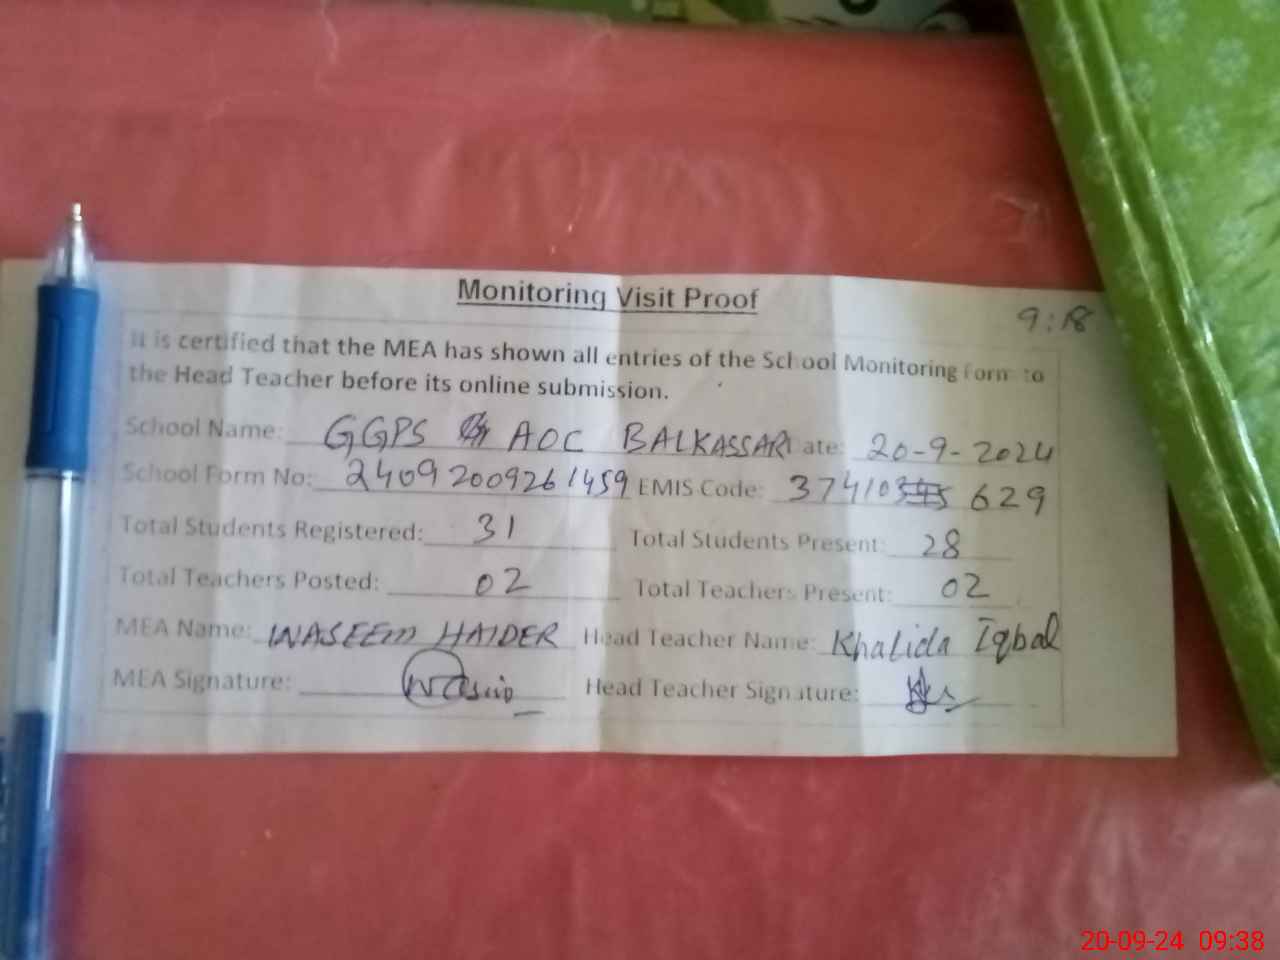 Monitoring Visit Proof
9:18
It is certified that the MEA has shown all entries of the School Monitoring Form to
the Head Teacher before its online submission.
School Name: GGPS AOC BALKASSAR ate: 20-9-2024
School Form No: 24092009261459 EMIS Code: 37410 629
Total Students Registered: 31 Total Students Present: 28
Total Teachers Posted: 02 Total Teachers Present: 02
MEA Name: WASEEM HAIDER Head Teacher Name: Khalida Iqbal
MEA Signature: Head Teacher Signature:
20-09-24 09:38